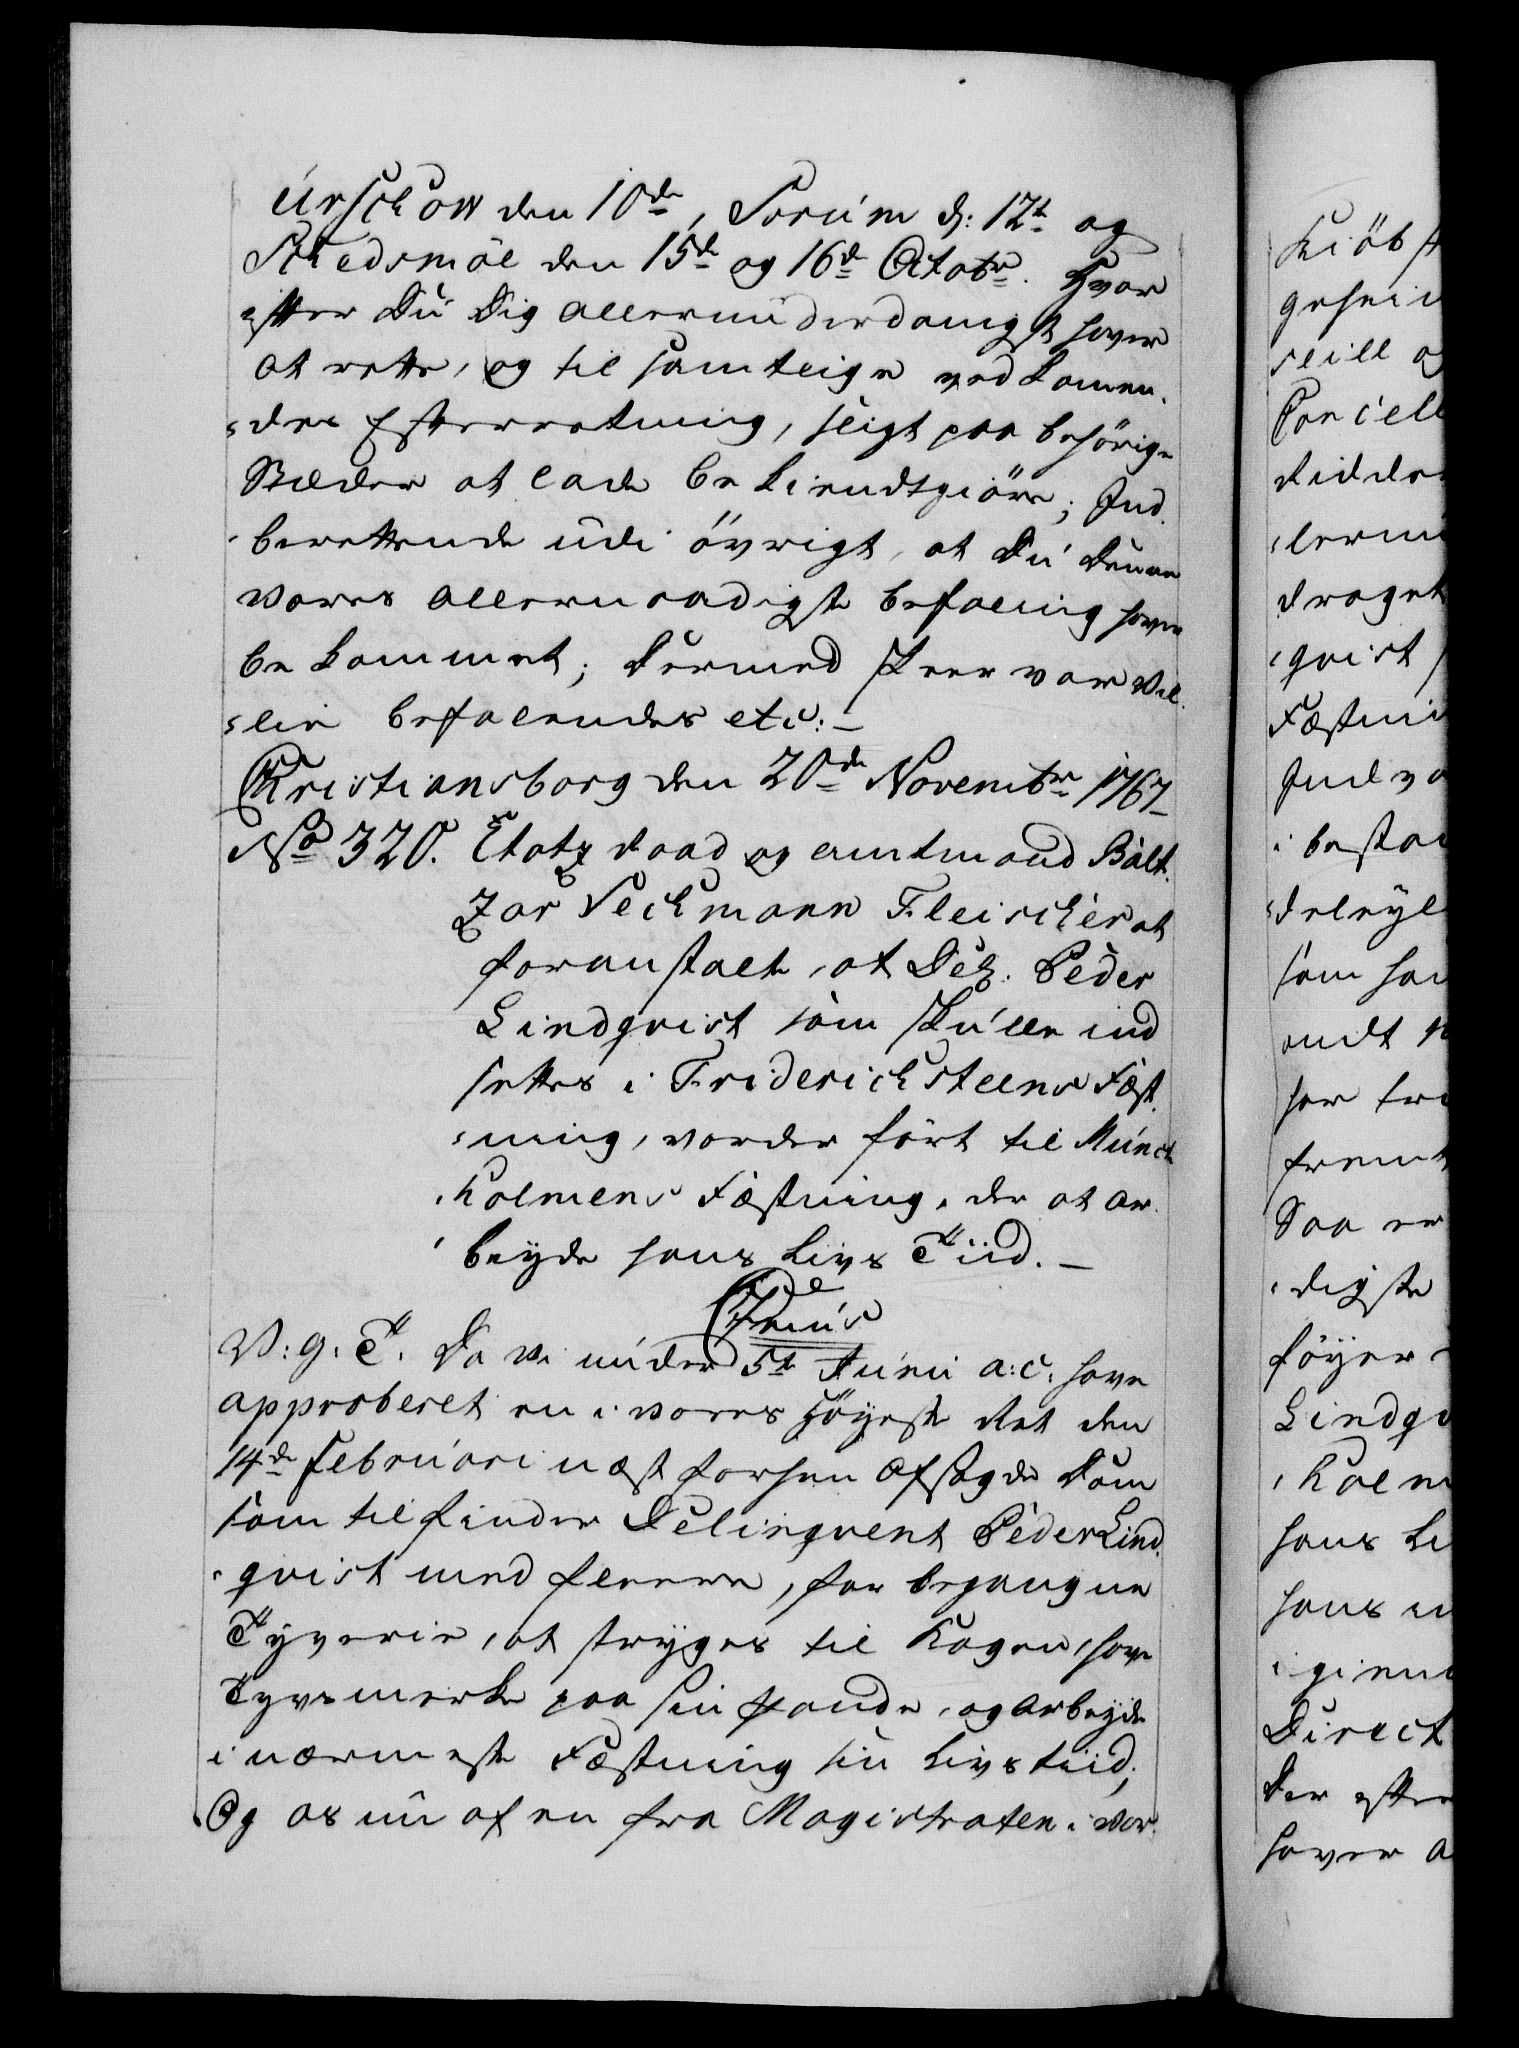 Urschow den 10de, Sørum d: 12t og
Schedsmoe den 15de og 16de Octobr. Hvor
efter Du Dig allerunderdanigst haver
at rette, og til samtlige vedkommen-
des Efterretning, sligt paa behörige
Stæder at lade bekiendtgiöre; Ind-
berettende udi övrigt, at Du denne
vores allernaadigste befaling haver
bekommet; dermed skeer vor vil-
lie befalendes etc:
Christiansborg den 20de Novembr 1767
No 320. Etatz Raad og amtmand Balt-
zar Seckmann Fleischer at
foranstalte, at Del: Peder
Lindqvist som skulle ind
settes i Friderichsteens Fæst-
ning, vorder fört til Munck
holmens Fæstning, der at ar-
beyde hans Livs Tiid.
C7mus
V: g. T. Da vi under 5te Junii a: c: have
approberet en i vores Höyeste Ret den
14de Februari næst forhen afsagde Dom
som tilfinder Delinqvent Peder Lind-
qvist med fleere, for begangne
Tyverie, at stryges til Kagen, have
Tyvsmerke paa sin Pande, og arbeyde
i nærmeste Fæstning sin Livs tiid;
Og os nu af en fra Magistraten i vor
Kiöbst
seill og
Parcell
draget
qvist
Fæstni
i bestan
som han
andt
Saa er
digste
föyer
Lindqv
holm
hans Li
hans
Direct
Der efter
haver a